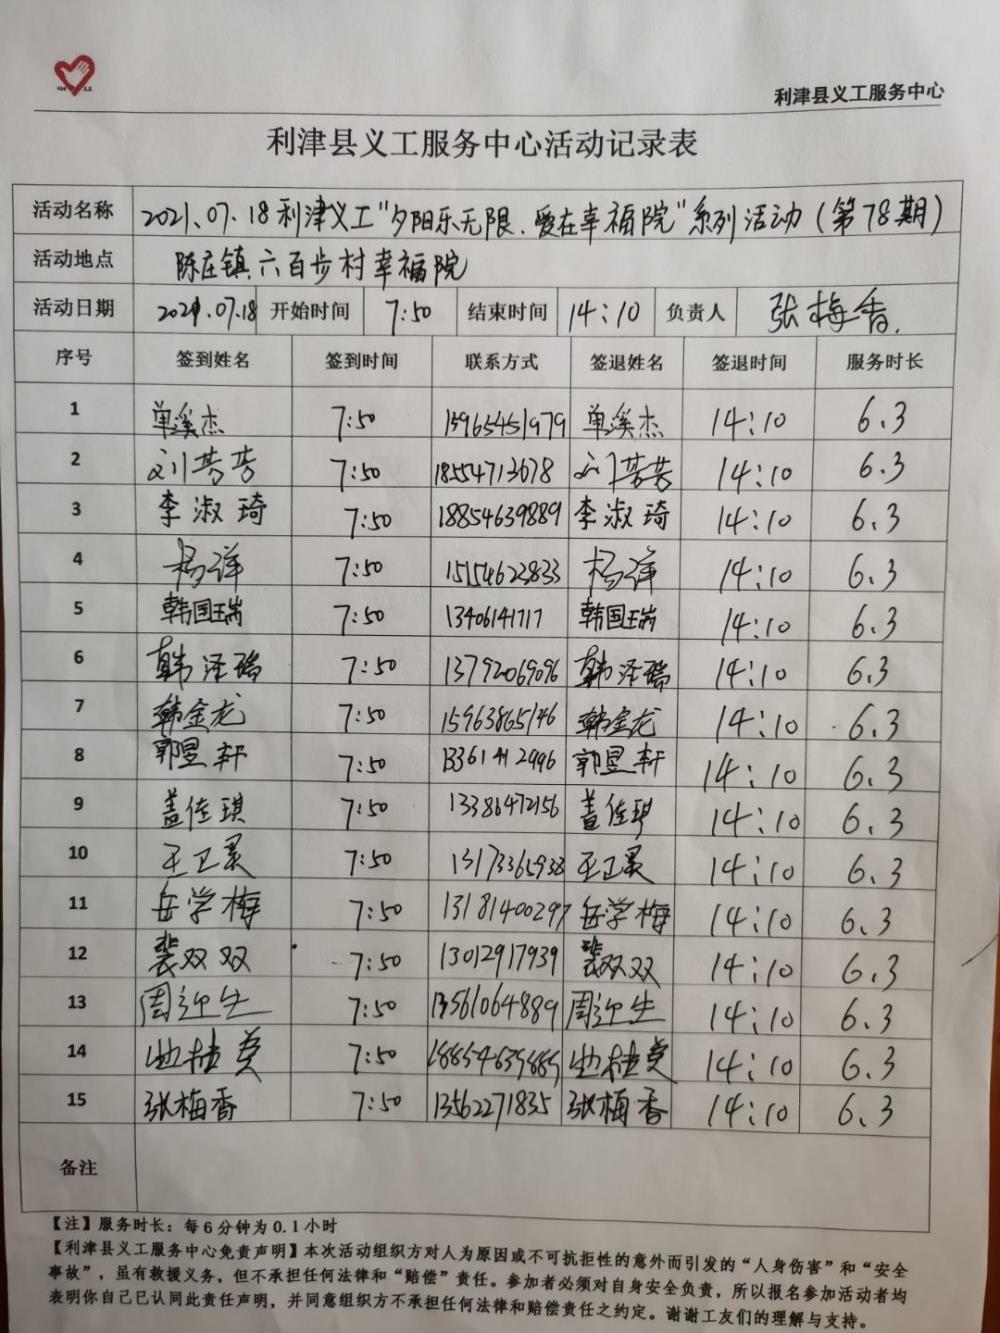 利津县义工服务中心
利津县义工服务中心活动记录表
活动名称 2021.07.18利津义工"夕阳乐无限.爱在幸福院"系列活动(第78期)
活动地点 陈庄镇六百步村幸福院
活动日期 2021.07.18 开始时间 7:50 结束时间 14:10 负责人 张梅香.
序号 签到姓名 签到时间 联系方式 签退姓名 签退时间 服务时长
1 单溪杰 7:50 15965451979 单溪杰 14:10 6.3
2 刘芳芳 7:50 18554713678 刘芳芳 14:10 6.3
3 李淑琦 7:50 18854639889 李淑琦 14:10 6.3
4 杨洋 7:50 15154623833 杨洋 14:10 6.3
5 韩国瑞 7:50 13406141717 韩国瑞 14:10 6.3
6 韩泽瑞 7:50 13792069096 韩泽瑞 14:10 6.3
7 韩金龙 7:50 15963865146 韩金龙 14:10 6.3
8 郭昱轩 7:50 13361412996 郭昱轩 14:10 6.3
9 盖佳琪 7:50 13386472156 盖佳琪 14:10 6.3
10 王卫灵 7:50 13173365938 王卫灵 14:10 6.3
11 岳学梅 7:50 13181400297 岳学梅 14:10 6.3
12 裴双双 7:50 13012917939 裴双双 14:10 6.3
13 周迎生 7:50 13561064889 周迎生 14:10 6.3
14 7:50 14:10 6.3
15 张梅香 7:50 13562271835 张梅香 14:10 6.3
备注
【注】服务时长：每6分钟为0.1小时
【利津县义工服务中心免责声明】本次活动组织方对人为原因或不可抗拒性的意外而引发的“人身伤害”和“安全
事故”，虽有救援义务，但不承担任何法律和“赔偿”责任。参加者必须对自身安全负责，所以报名参加活动者均
表明你自己已认同此责任声明，并同意组织方不承担任何法律和赔偿责任之约定。谢谢工友们的理解与支持。